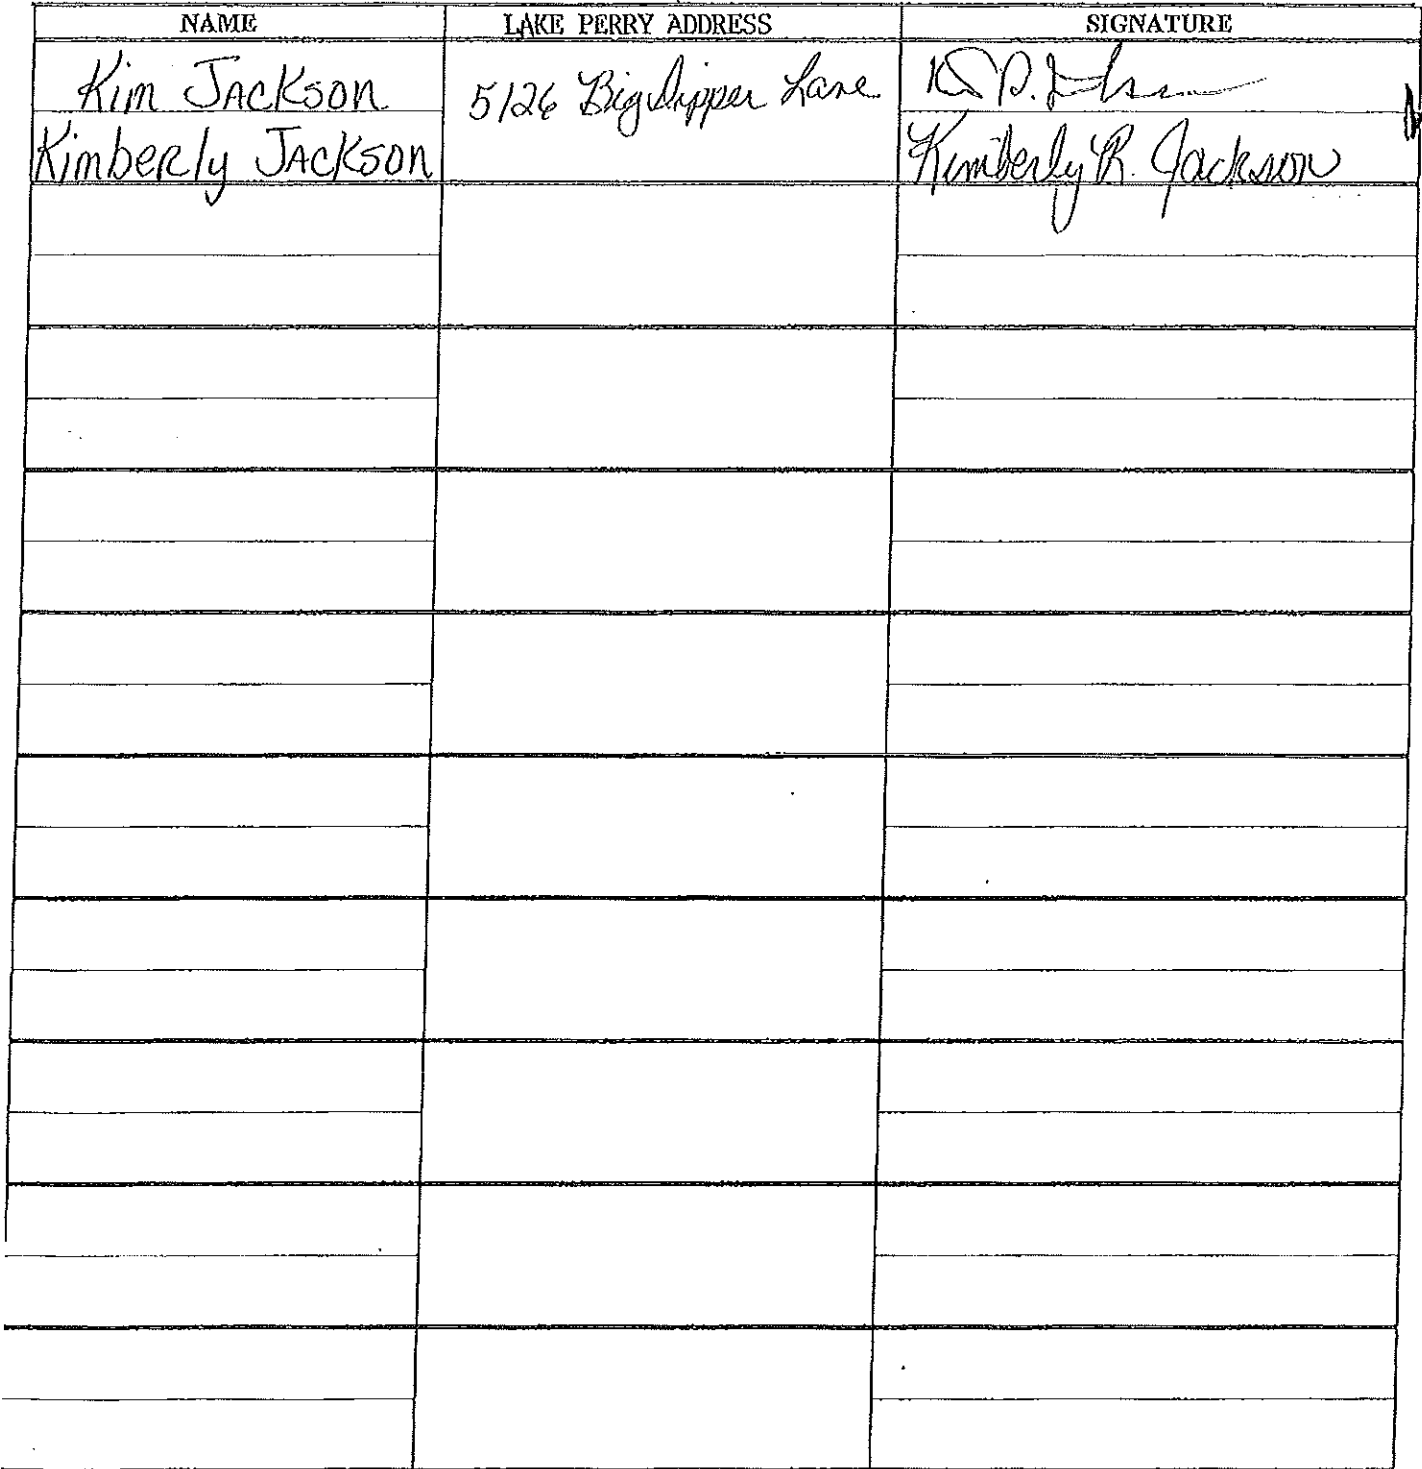 NAME LAKE PERRY ADDRESS SIGNATURE
Kim JACKSON 5126 Big Dipper Lane
Kimberly JACKSON Kimberly R. Jackson